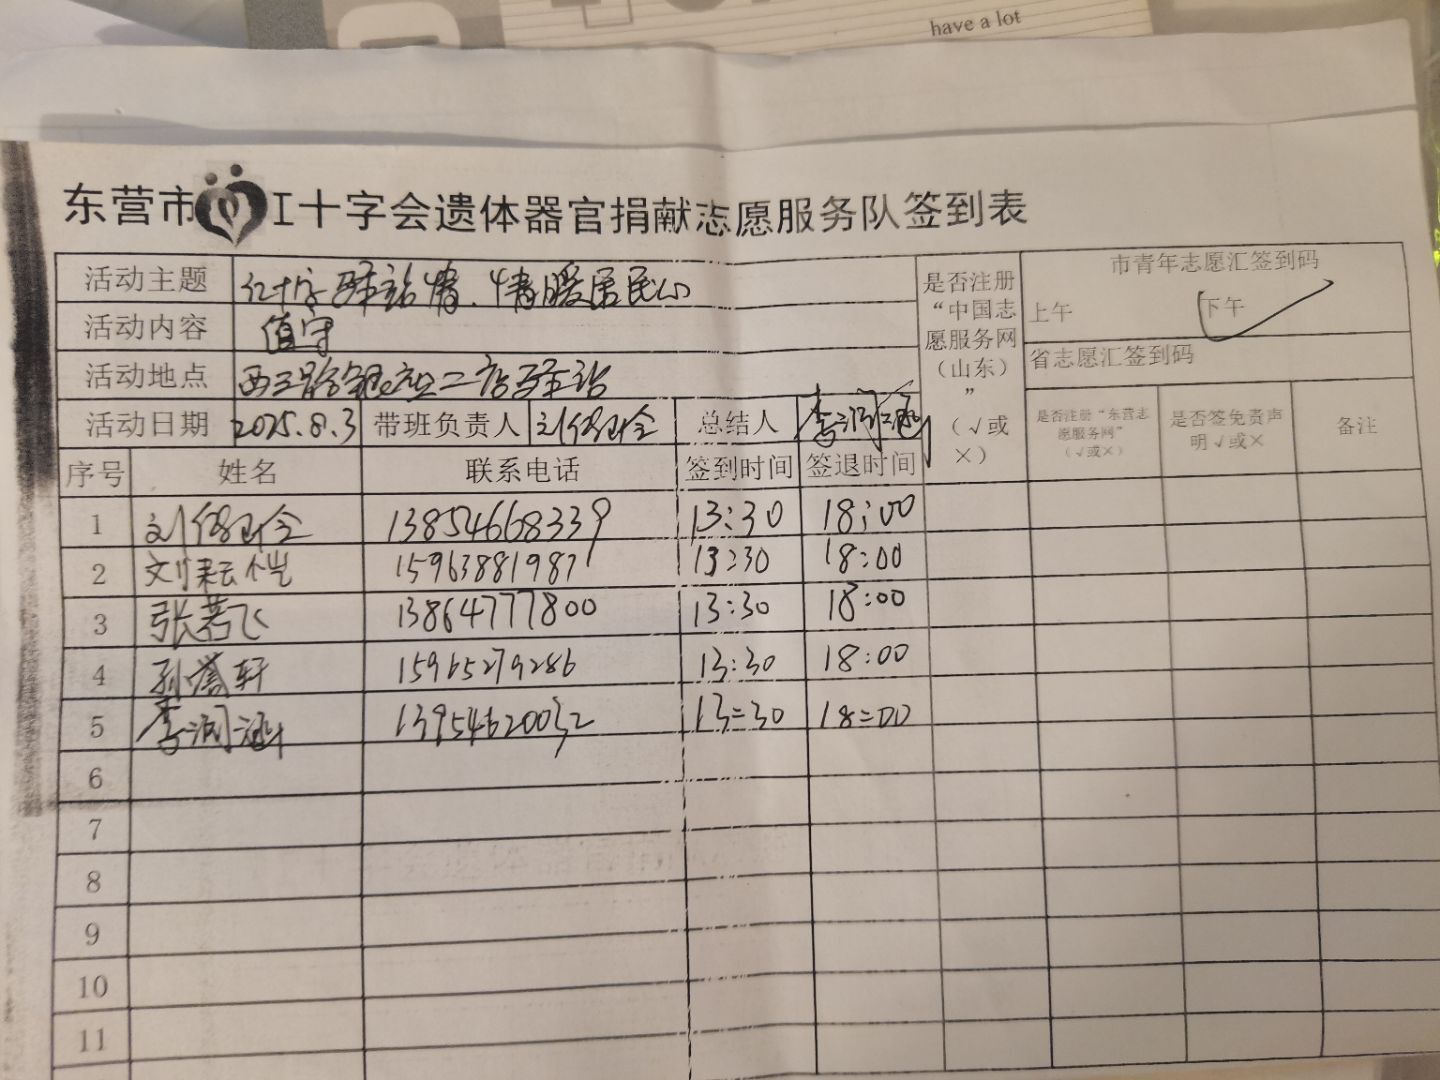 have a lot
东营市工十字会遗体器官捐献志愿服务队签到表
活动主题 红十字驿站情、情暖居民心 是否注册“中国志愿服务网（山东）”（√或×） 市青年志愿汇签到码
上午 下午 √
活动内容 值守
省志愿汇签到码
活动地点 西三路银座二店驿站
活动日期 2025.8.3 带班负责人 总结人 李润涵 是否注册“东营志愿服务网”（√或×） 是否签免责声明√或× 备注
序号 姓名 联系电话 签到时间 签退时间
1 13854668339 13:30 18:00
2 刘耘恺 15963881987 13:30 18:00
3 张若飞 13864777800 13:30 18:00
4 孙誉轩 15965279286 13:30 18:00
5 李润涵 13954620032 13:30 18:00
6
7
8
9
10
11